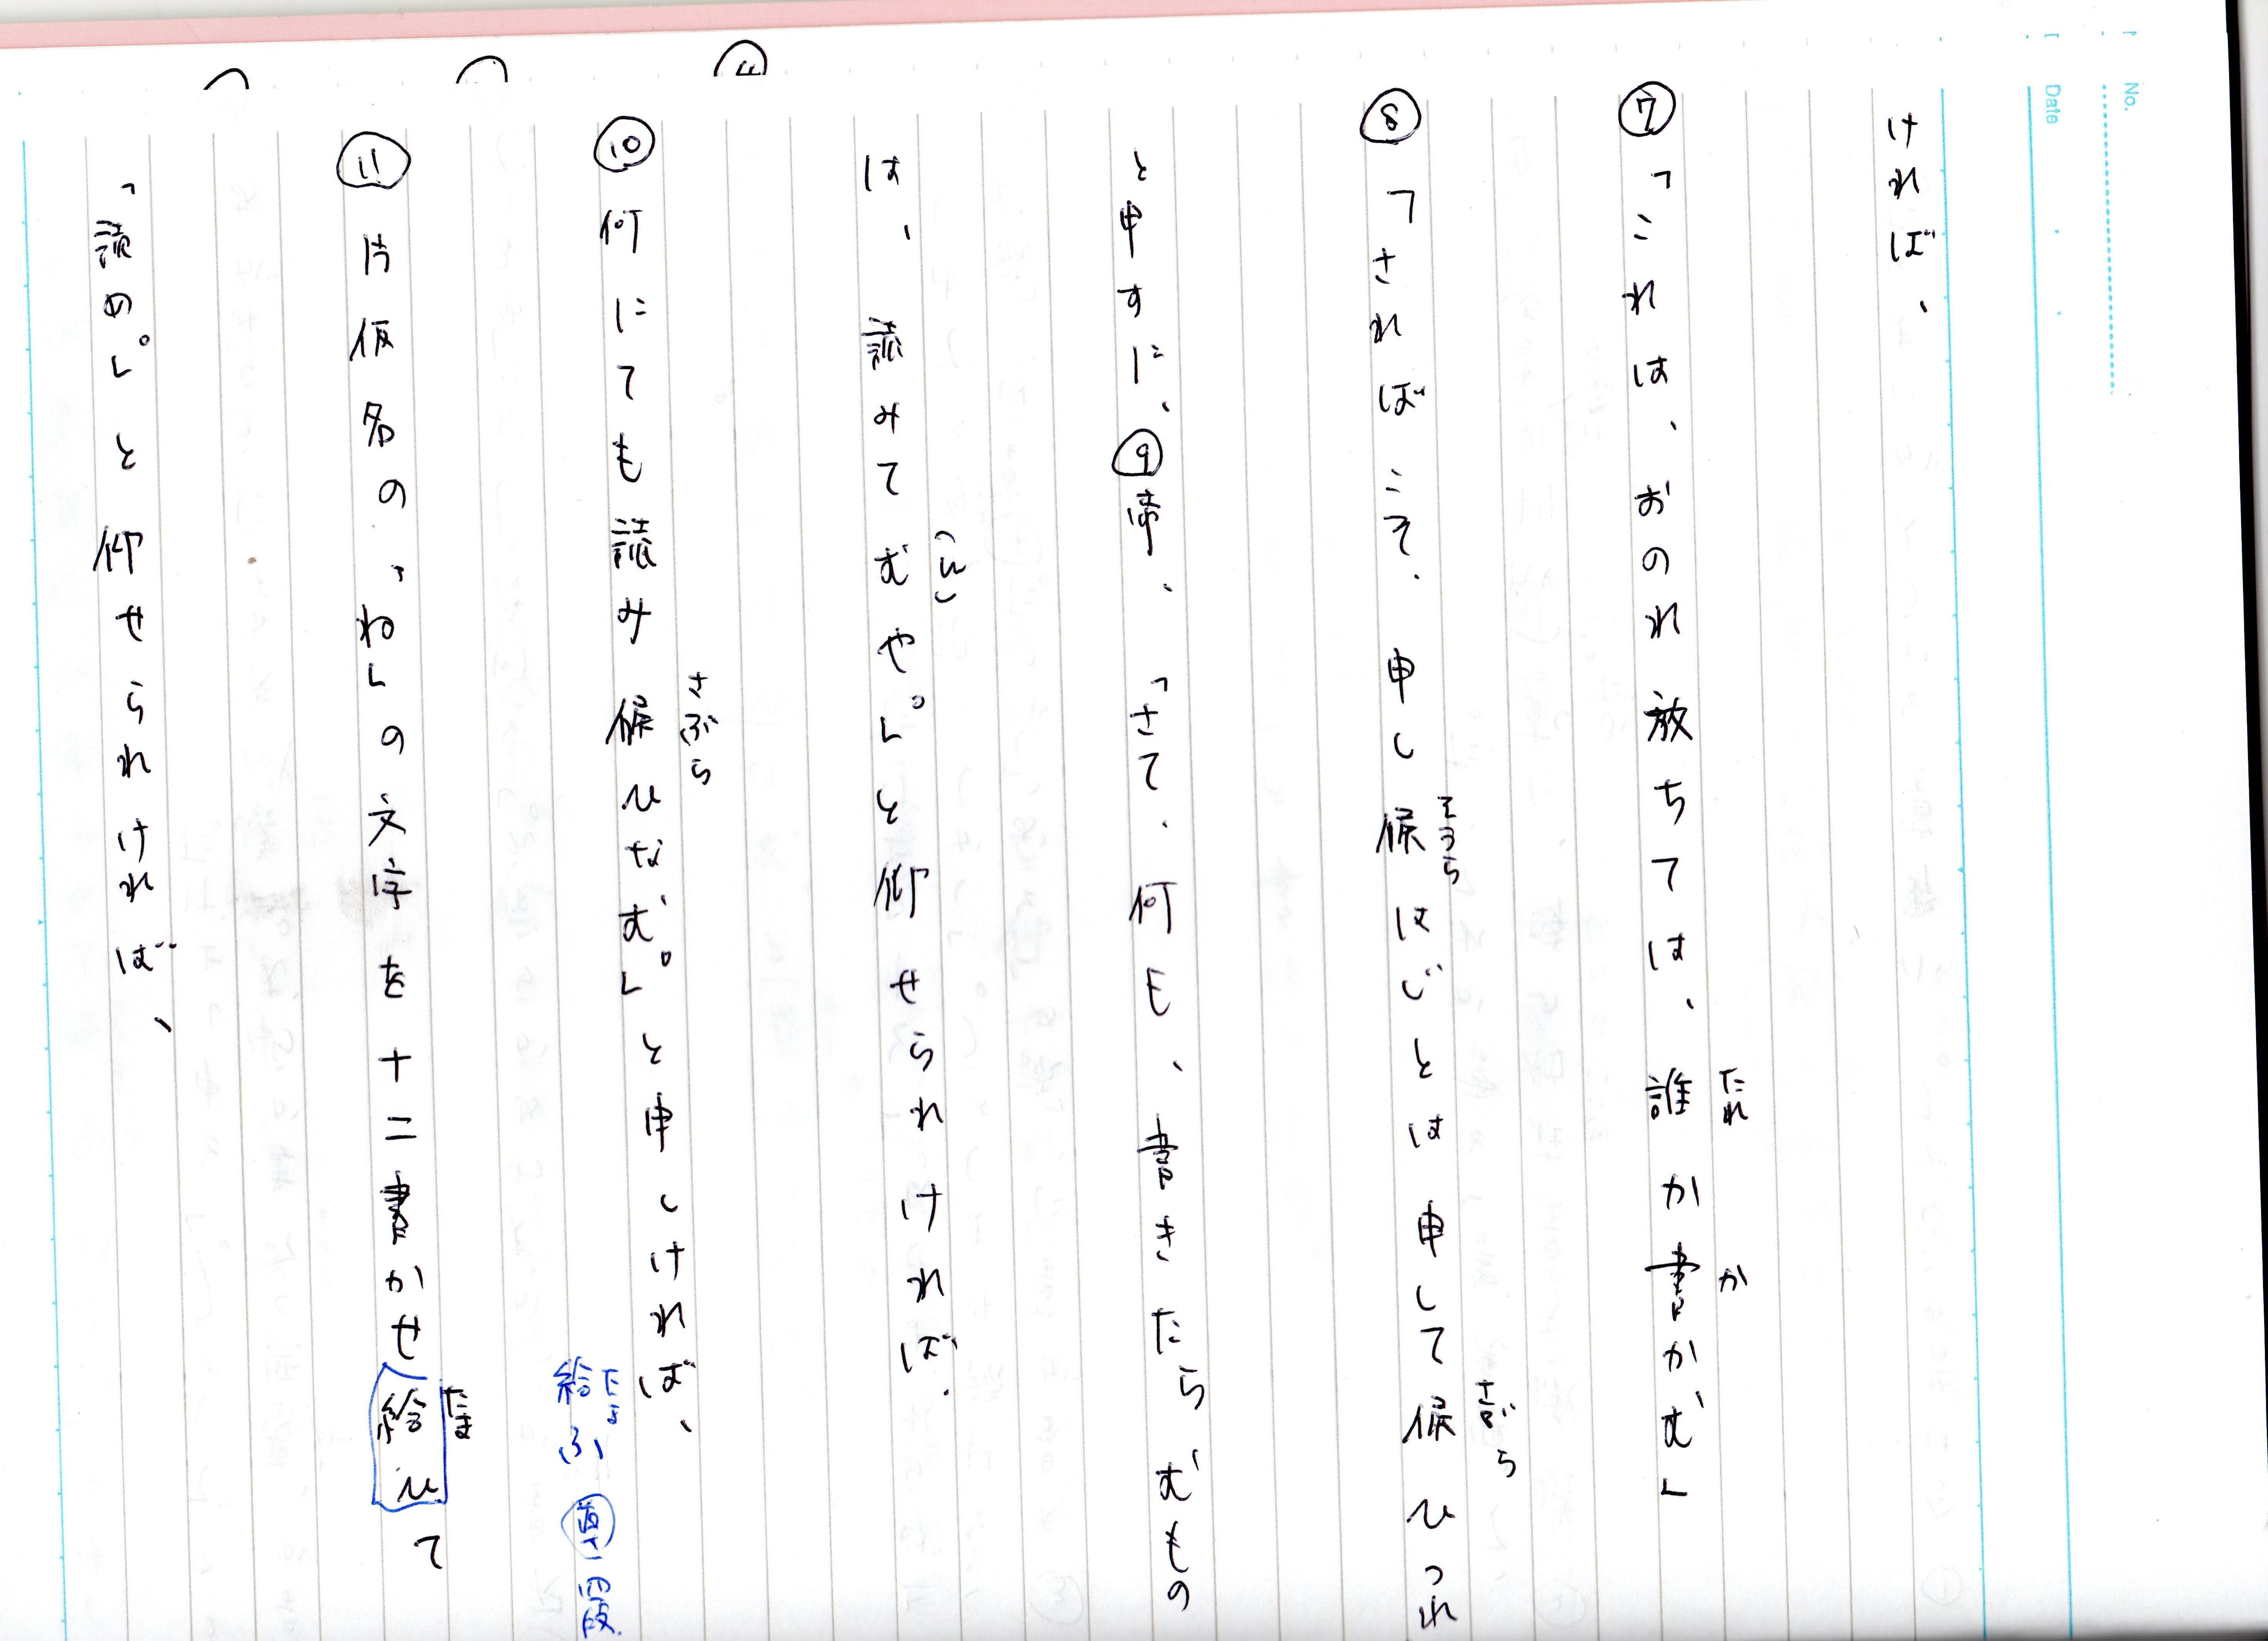 No.
Date
ければ、
⑦「これは、おのれ放ちては、誰か書かむ」
たれ
か
⑧「さればこそ、申し候はじとは申して候ひつれ
そうら
さぶら
と申すに、⑨帝、「さて、何も、書きたらむもの
は、読みてむや。」と仰せられければ、
(ん)
⑩何にても読み候ひなむ。」と申しければ、
さぶら
給ふ 尊 四段
たま
⑪片仮名の、「ね」の文字を十二書かせ給ひて
たま
「読め。」と仰せられければ、